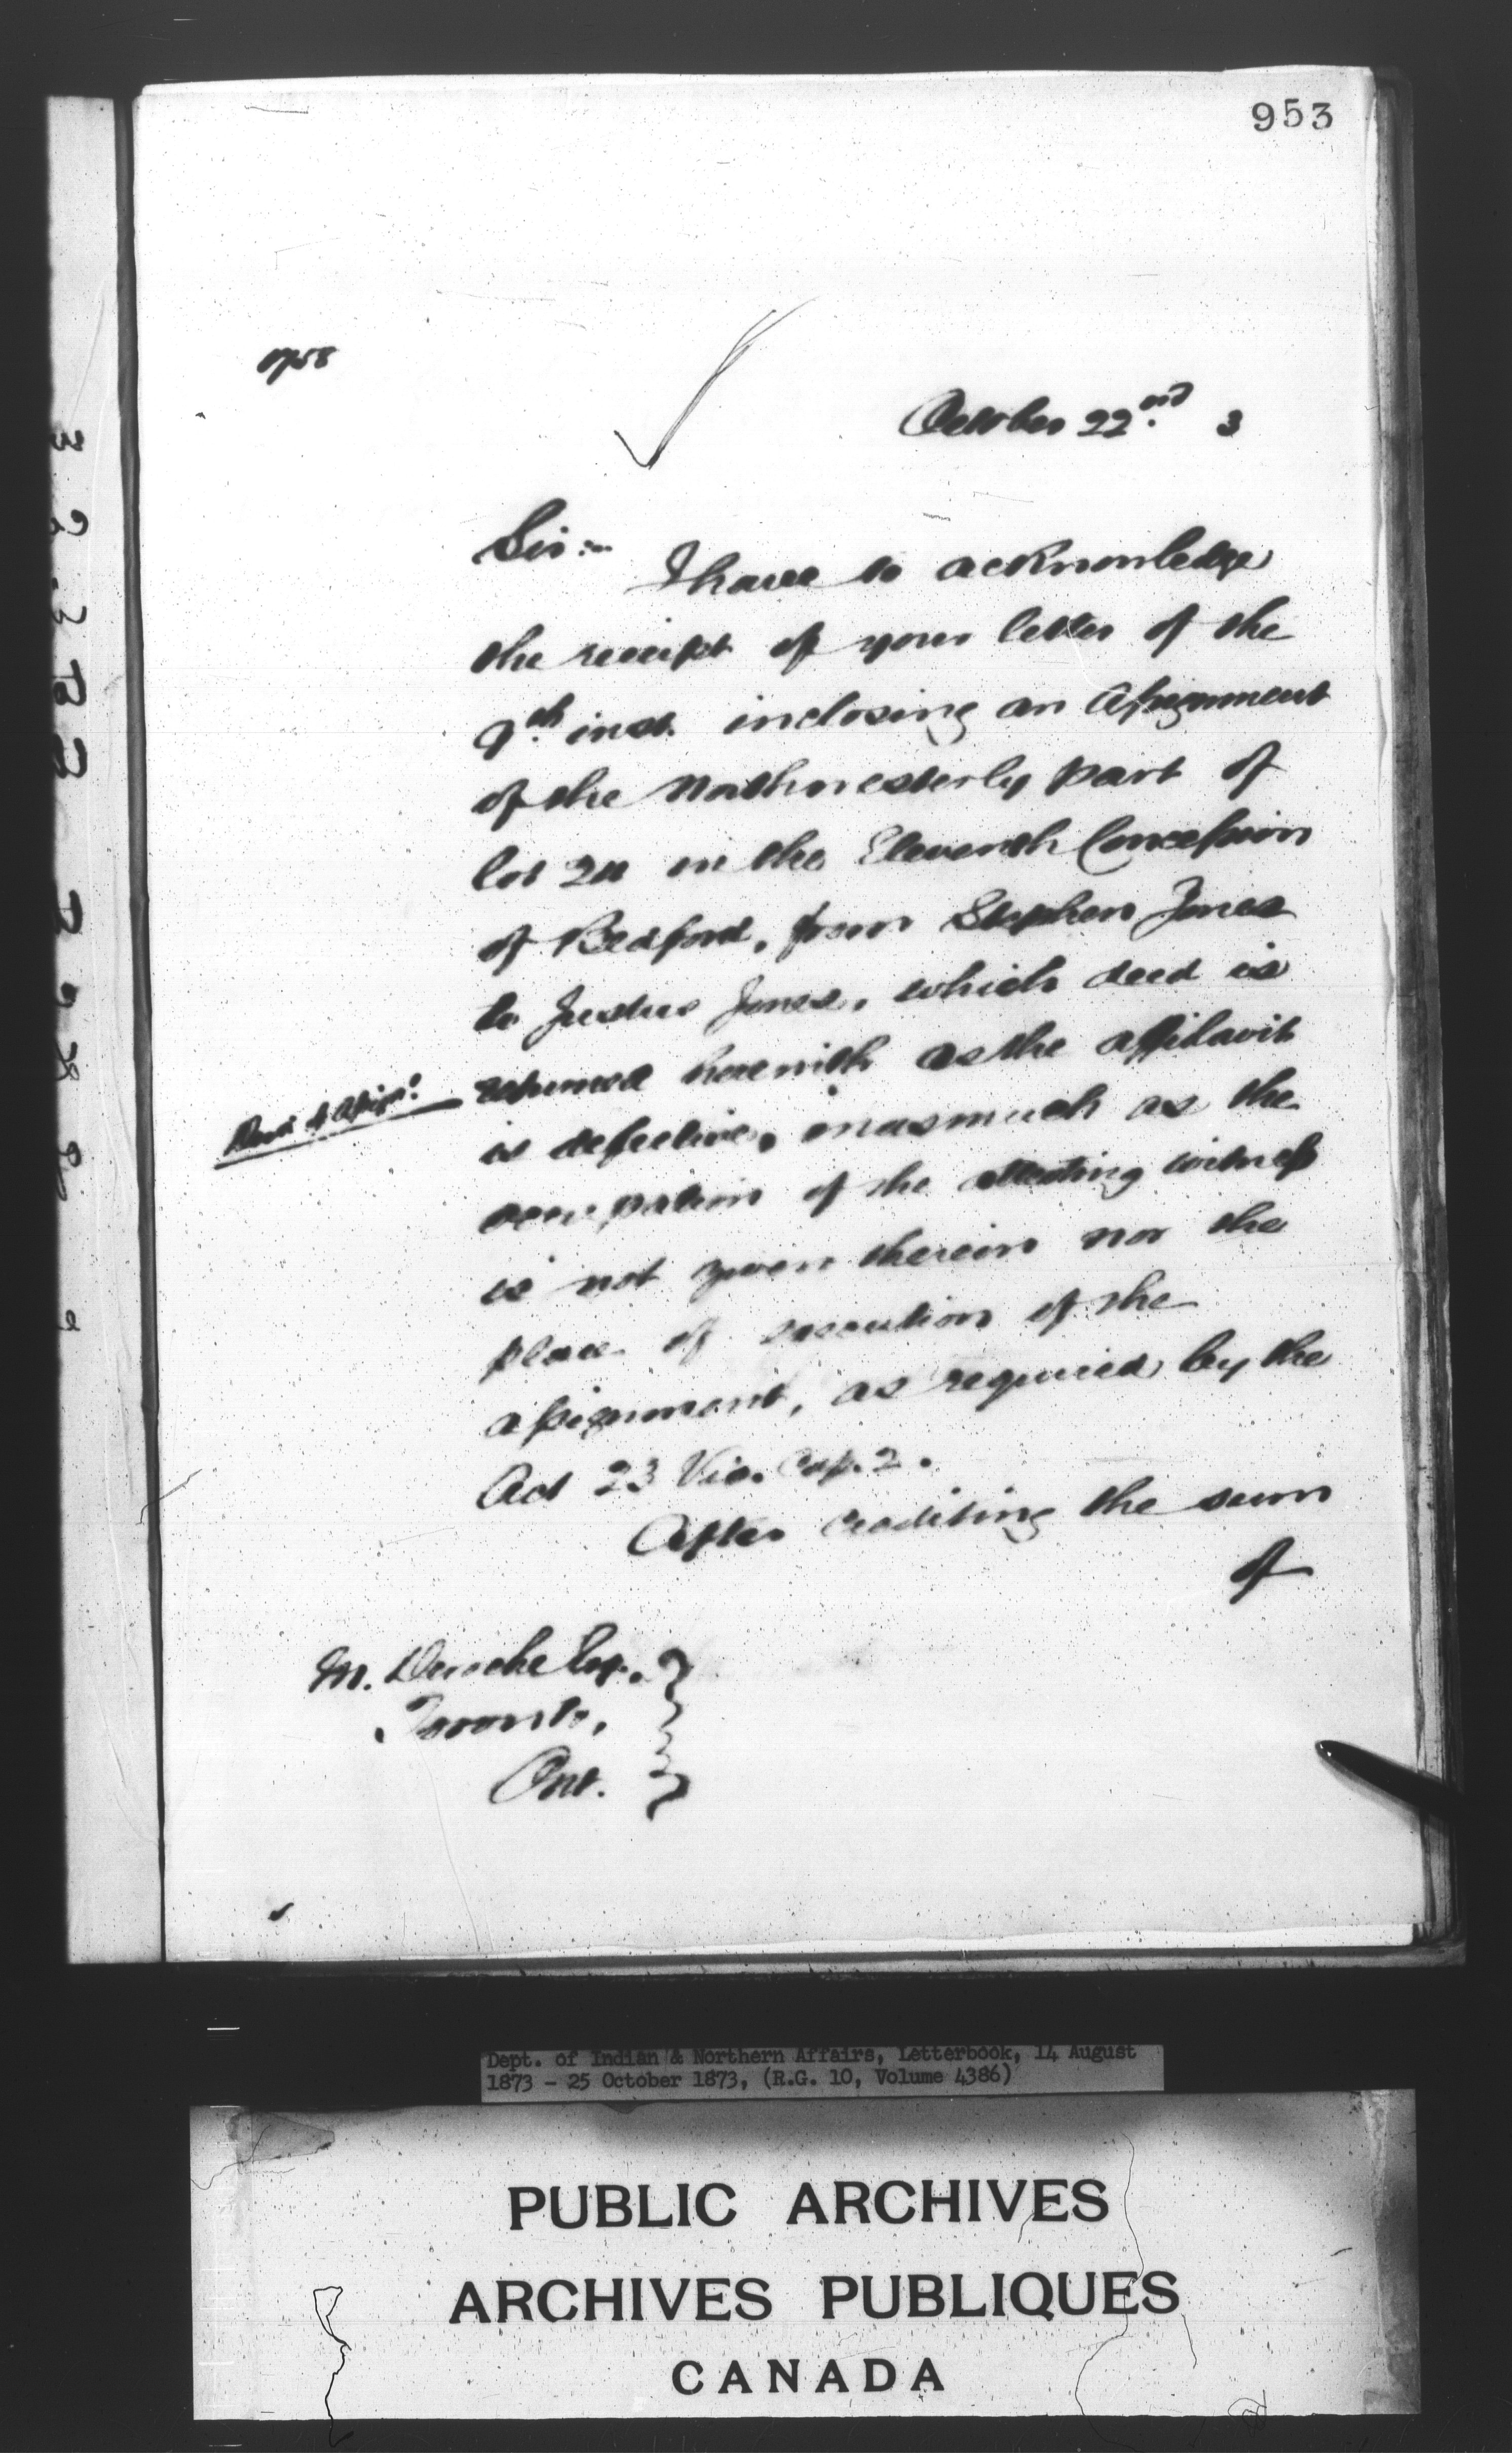 953
October 22nd. 3
Sir:—
I have to acknowledge
the receipt of your letter of the
9th. inst. inclosing an Assignment
of the Northwesterly part of
lot 24 in the Eleventh Concession
of Bedford, from Stephen Jones
to Justus Jones, which deed is
returned herewith as the affidavit
is defective, inasmuch as the
occupation of the attesting witness
is not given therein nor the
place of execution of the
assignment, as required by the
Act 23 Vic. Cap. 2.
After crediting the sum
of
Toronto,
Ont.
Dept. of Indian & Northern Affairs, Letterbook, 14 August
1873 - 25 October 1873, (R.G. 10, Volume 4386)
PUBLIC ARCHIVES
ARCHIVES PUBLIQUES
CANADA